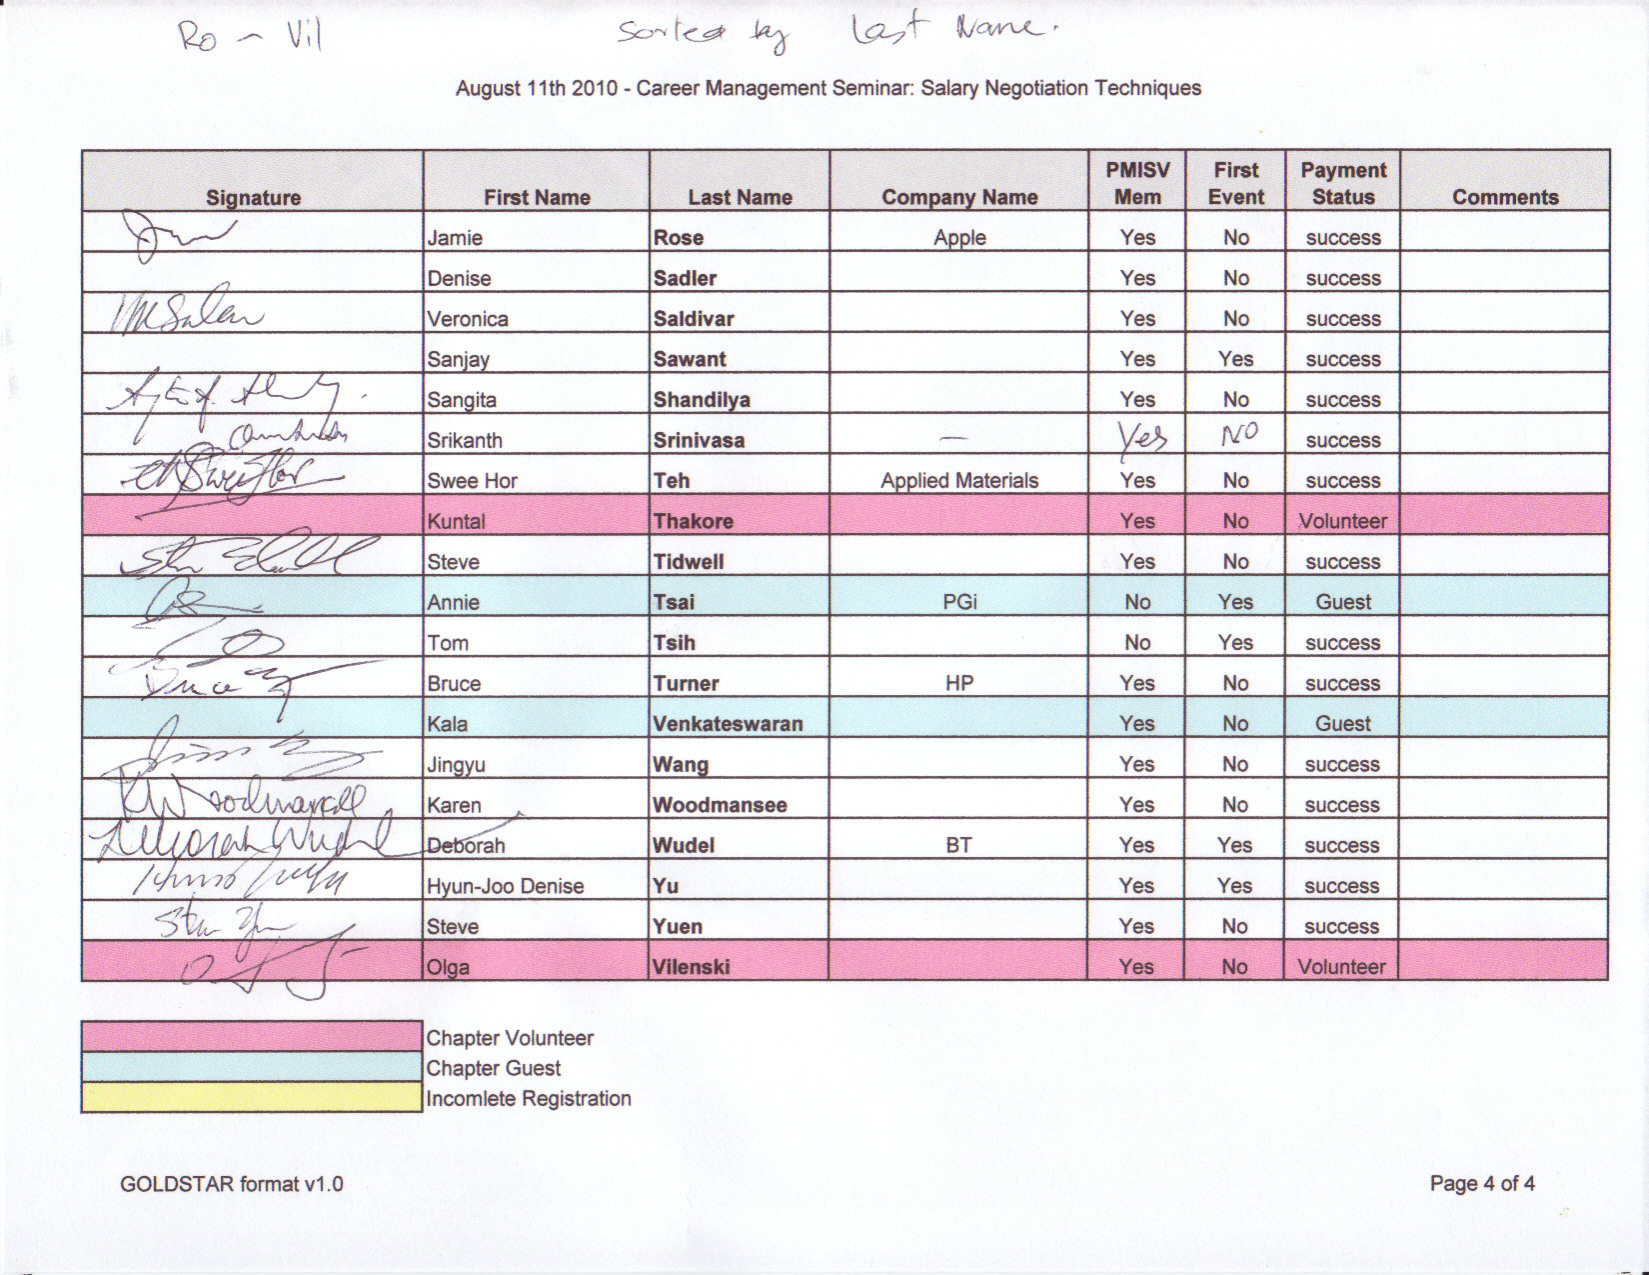 Ro - Vil Sorted by Last Name.
August 11th 2010 - Career Management Seminar: Salary Negotiation Techniques
Signature First Name Last Name Company Name PMISV Mem First Event Payment Status Comments
Jamie Rose Apple Yes No success
Denise Sadler Yes No success
Veronica Saldivar Yes No success
Sanjay Sawant Yes Yes success
Sangita Shandilya Yes No success
Srikanth Srinivasa — Yes NO success
Swee Hor Teh Applied Materials Yes No success
Kuntal Thakore Yes No Volunteer
Steve Tidwell Yes No success
Annie Tsai PGi No Yes Guest
Tom Tsih No Yes success
Bruce Bruce Turner HP Yes No success
Kala Venkateswaran Yes No Guest
Jingyu Wang Yes No success
KWoodmansee Karen Woodmansee Yes No success
Deborah Wudel Deborah Wudel BT Yes Yes success
Hyun-Joo Denise Yu Yes Yes success
Steve Yuen Yes No success
Olga Vilenski Yes No Volunteer
Chapter Volunteer
Chapter Guest
Incomlete Registration
GOLDSTAR format v1.0 Page 4 of 4